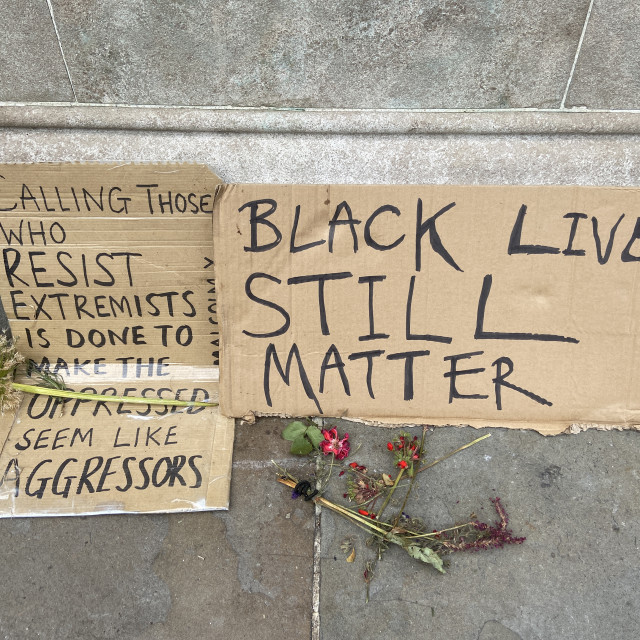 CALLING THOSE
WHO
RESIST
EXTREMISTS
IS DONE TO
MAKE THE
OPPRESSED
SEEM LIKE
AGGRESSORS
BLACK LIVE
STILL
MATTER